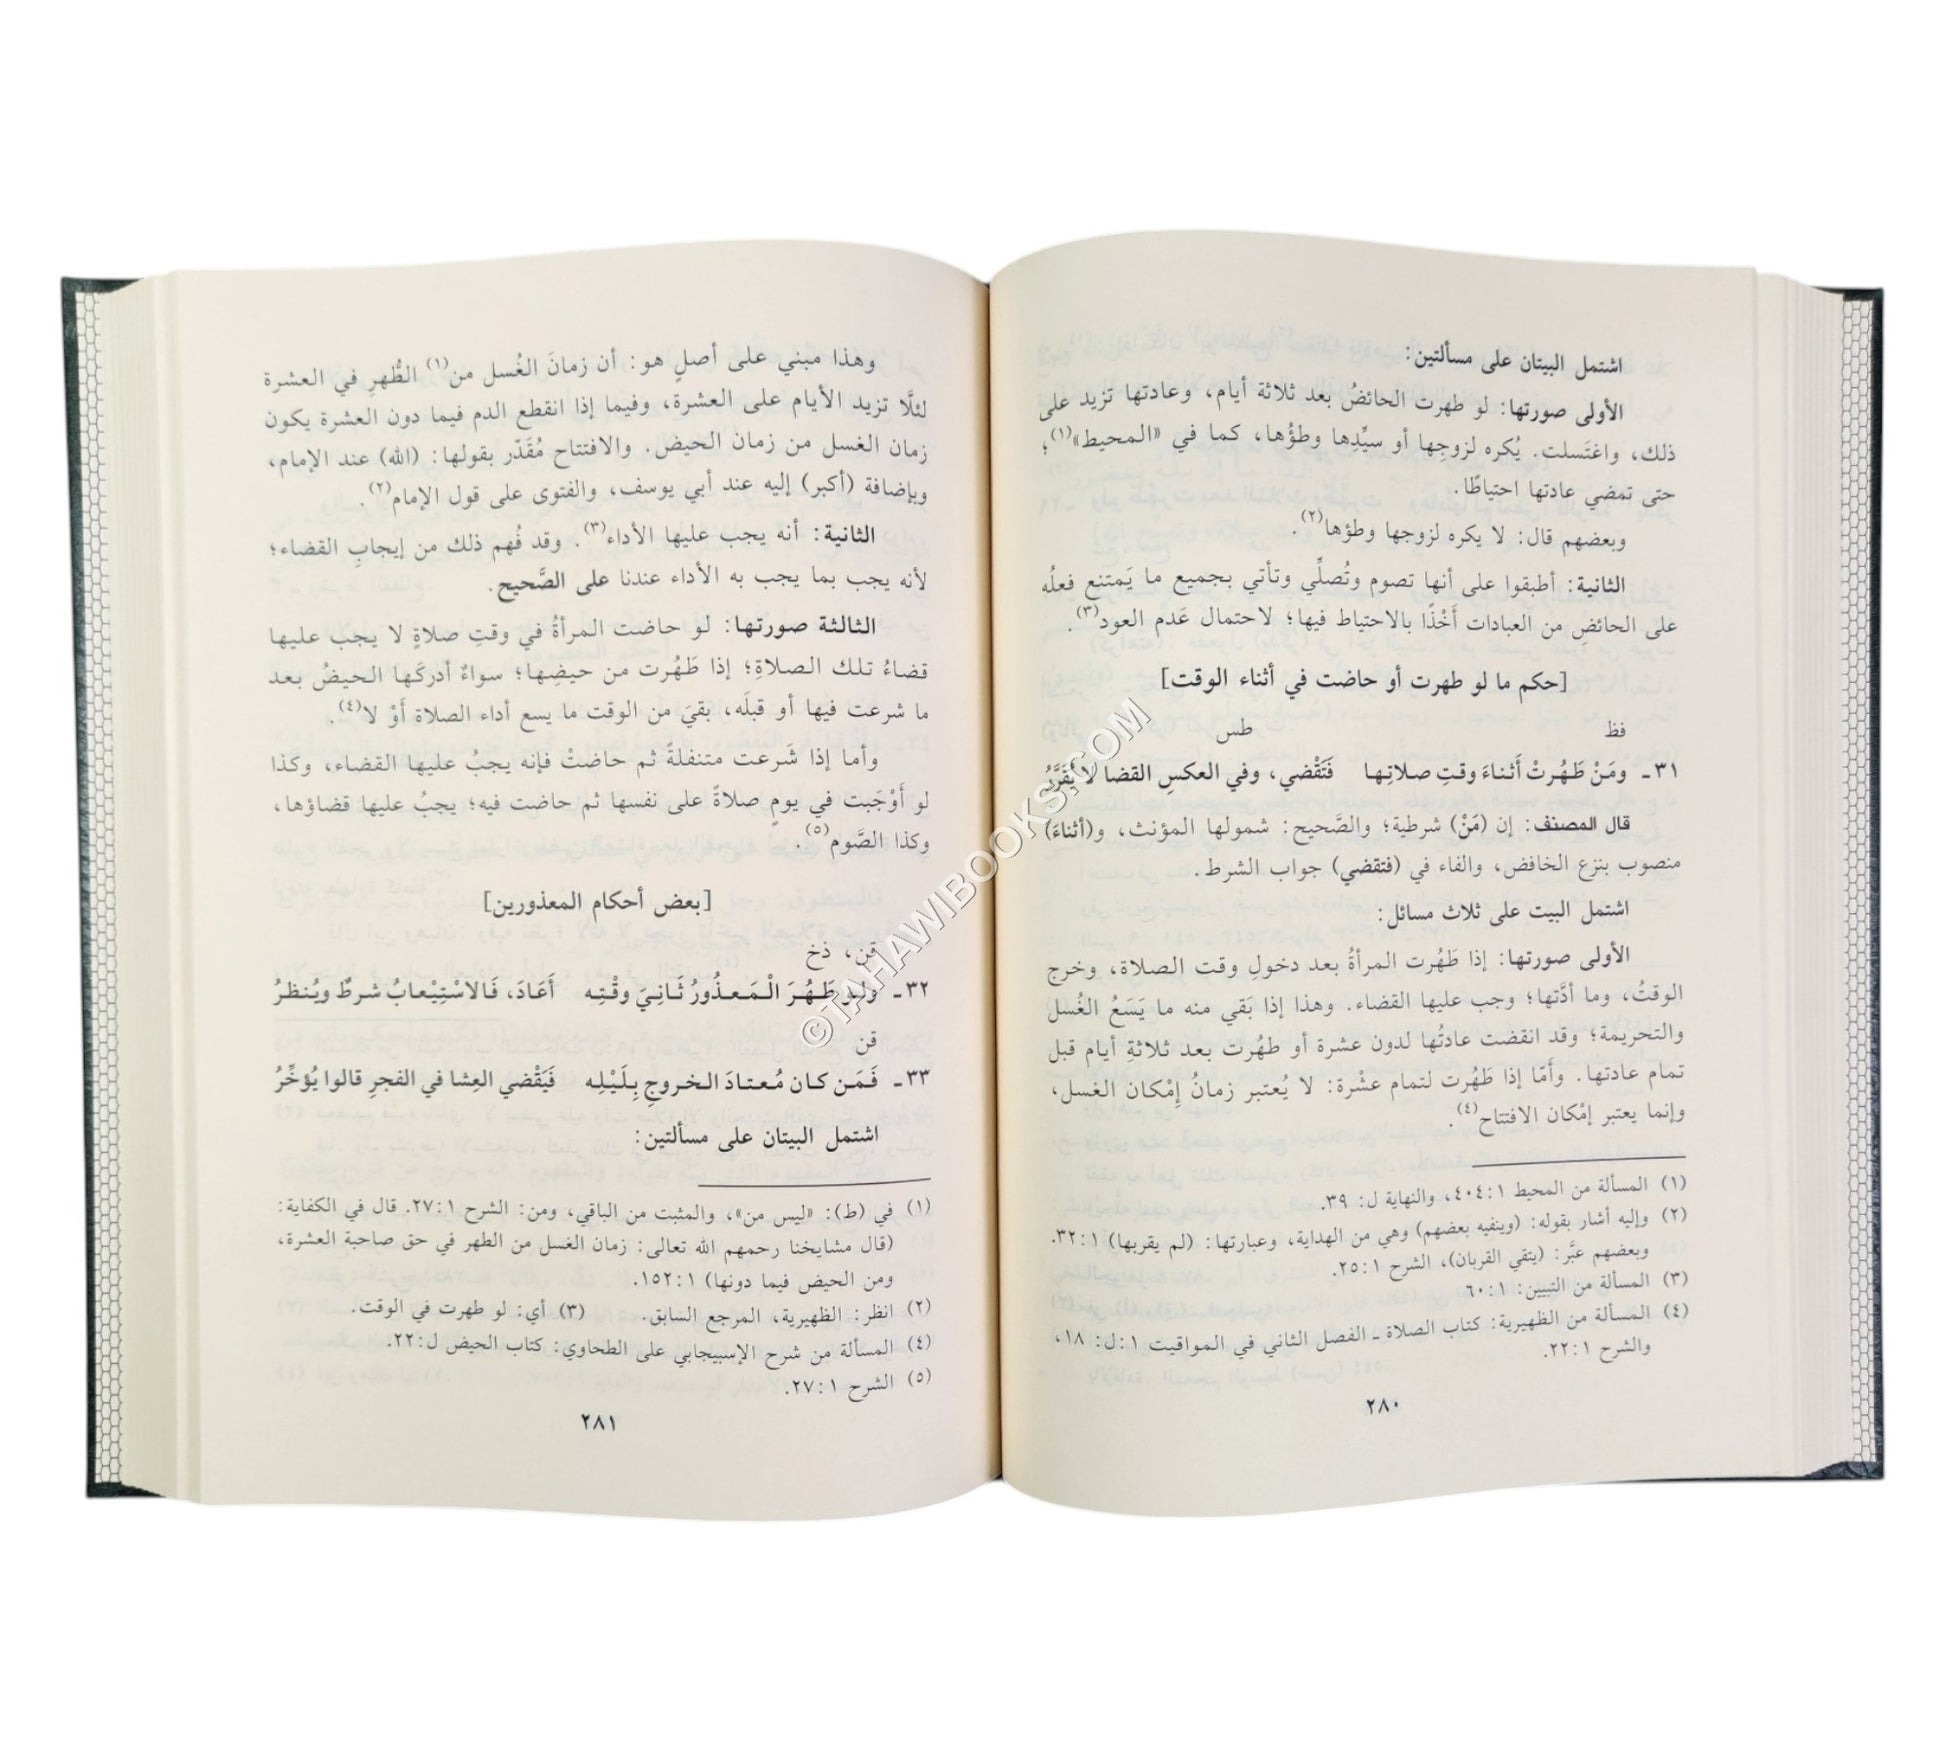 اشتمل البيتان على مسألتين:
الأولى صورتها: لو طهرت الحائضُ بعد ثلاثة أيام، وعادتها تزيد على
ذلك، واغتَسلت. يُكره لزوجِها أو سيِّدِها وطؤُها، كما في «المحيط»(١)؛
حتى تمضي عادتها احتياطًا.
وبعضهم قال: لا يكره لزوجها وطؤها(٢).
الثانية: أطبقوا على أنها تصوم وتُصلِّي وتأتي بجميع ما يَمتنع فعلُه
على الحائضِ من العبادات أَخْذًا بالاحتياط فيها؛ لاحتمال عَدم العود(٣).
[حكم ما لو طهرت أو حاضت في أثناء الوقت]
فظ طس
٣١ـ ومَنْ طَهُرتْ أَثناءَ وقتِ صلاتِها فَتَقْضي، وفي العكسِ القضا لا يُقَرَّرُ
قال المصنف: إن (مَنْ) شرطية؛ والصَّحيح: شمولها المؤنث، و(أثناءَ)
منصوب بنزع الخافض، والفاء في (فتقضي) جواب الشرط.
اشتمل البيت على ثلاث مسائل:
الأولى صورتها: إذا طَهُرت المرأةُ بعد دخولِ وقت الصلاة، وخرج
الوقتُ، وما أدَّتها؛ وجب عليها القضاء. وهذا إذا بَقي منه ما يَسَعُ الغُسل
والتحريمة؛ وقد انقضت عادتُها لدون عشرة أو طهُرت بعد ثلاثةِ أيام قبل
تمام عادتها. وأمّا إذا طَهُرت لتمام عشْرة: لا يُعتبر زمانُ إِمْكان الغسل،
وإنما يعتبر إمْكان الافتتاح(٤).
(١) المسألة من المحيط ٤٠٤:١، والنهاية ل: ٣٩.
(٢) وإليه أشار بقوله: (وينفيه بعضهم) وهي من الهداية، وعبارتها: (لم يقربها) ٣٢:١.
وبعضهم عبَّر: (يتقي القربان)، الشرح ٢٥:١.
(٣) المسألة من التبيين: ٦٠:١
(٤) المسألة من الظهيرية: كتاب الصلاة ـ الفصل الثاني في المواقيت ١:ل: ١٨،
والشرح ٢٢:١.
٢٨٠
وهذا مبني على أصلٍ هو: أن زمانَ الغُسل من(١) الطُّهرِ في العشرة
لئلَّا تزيد الأيام على العشرة، وفيما إذا انقطع الدم فيما دون العشرة يكون
زمان الغسل من زمان الحيض. والافتتاح مُقَدّر بقولها: (الله) عند الإمام،
وبإضافة (أكبر) إليه عند أبي يوسف، والفتوى على قول الإمام(٢).
الثانية: أنه يجب عليها الأداء(٣). وقد فُهم ذلك من إيجابِ القضاء؛
لأنه يجب بما يجب به الأداء عندنا على الصَّحيح.
الثالثة صورتها: لو حاضت المرأةُ في وقتِ صلاةٍ لا يجب عليها
قضاءُ تلك الصلاةِ؛ إذا طَهُرت من حيضِها؛ سواءٌ أدركَها الحيضُ بعد
ما شرعت فيها أو قبلَه، بقيَ من الوقت ما يسع أداء الصلاة أَوْ لا(٤).
وأما إذا شَرعت متنفلةً ثم حاضتْ فإنه يجبُ عليها القضاء، وكذا
لو أَوْجَبت في يومٍ صلاةً على نفسها ثم حاضت فيه؛ يجبُ عليها قضاؤها،
وكذا الصَّوم(٥).
[بعض أحكام المعذورين]
قن، ذخ
٣٢ـ ولو طَهُرَ الْمَعذُورُ ثَانِيَ وقْتِه أَعَادَ، فَالاسْتِيْعابُ شرطٌ ويُنظرُ
قن
٣٣ـ فَمَن كان مُعتادَ الخروجِ بِلَيْلِه فَيَقْضي العِشا في الفجرِ قالوا يُؤخِّرُ
اشتمل البيتان على مسألتين:
(١) في (ط): «ليس من»، والمثبت من الباقي، ومن: الشرح ٢٧:١. قال في الكفاية:
(قال مشايخنا رحمهم الله تعالى: زمان الغسل من الطهر في حق صاحبة العشرة،
ومن الحيض فيما دونها) ١٥٢:١.
(٢) انظر: الظهيرية، المرجع السابق. (٣) أي: لو طهرت في الوقت.
(٤) المسألة من شرح الإسبيجابي على الطحاوي: كتاب الحيض ل:٢٢.
(٥) الشرح ٢٧:١.
٢٨١
©TAHAWIBOOKS.COM